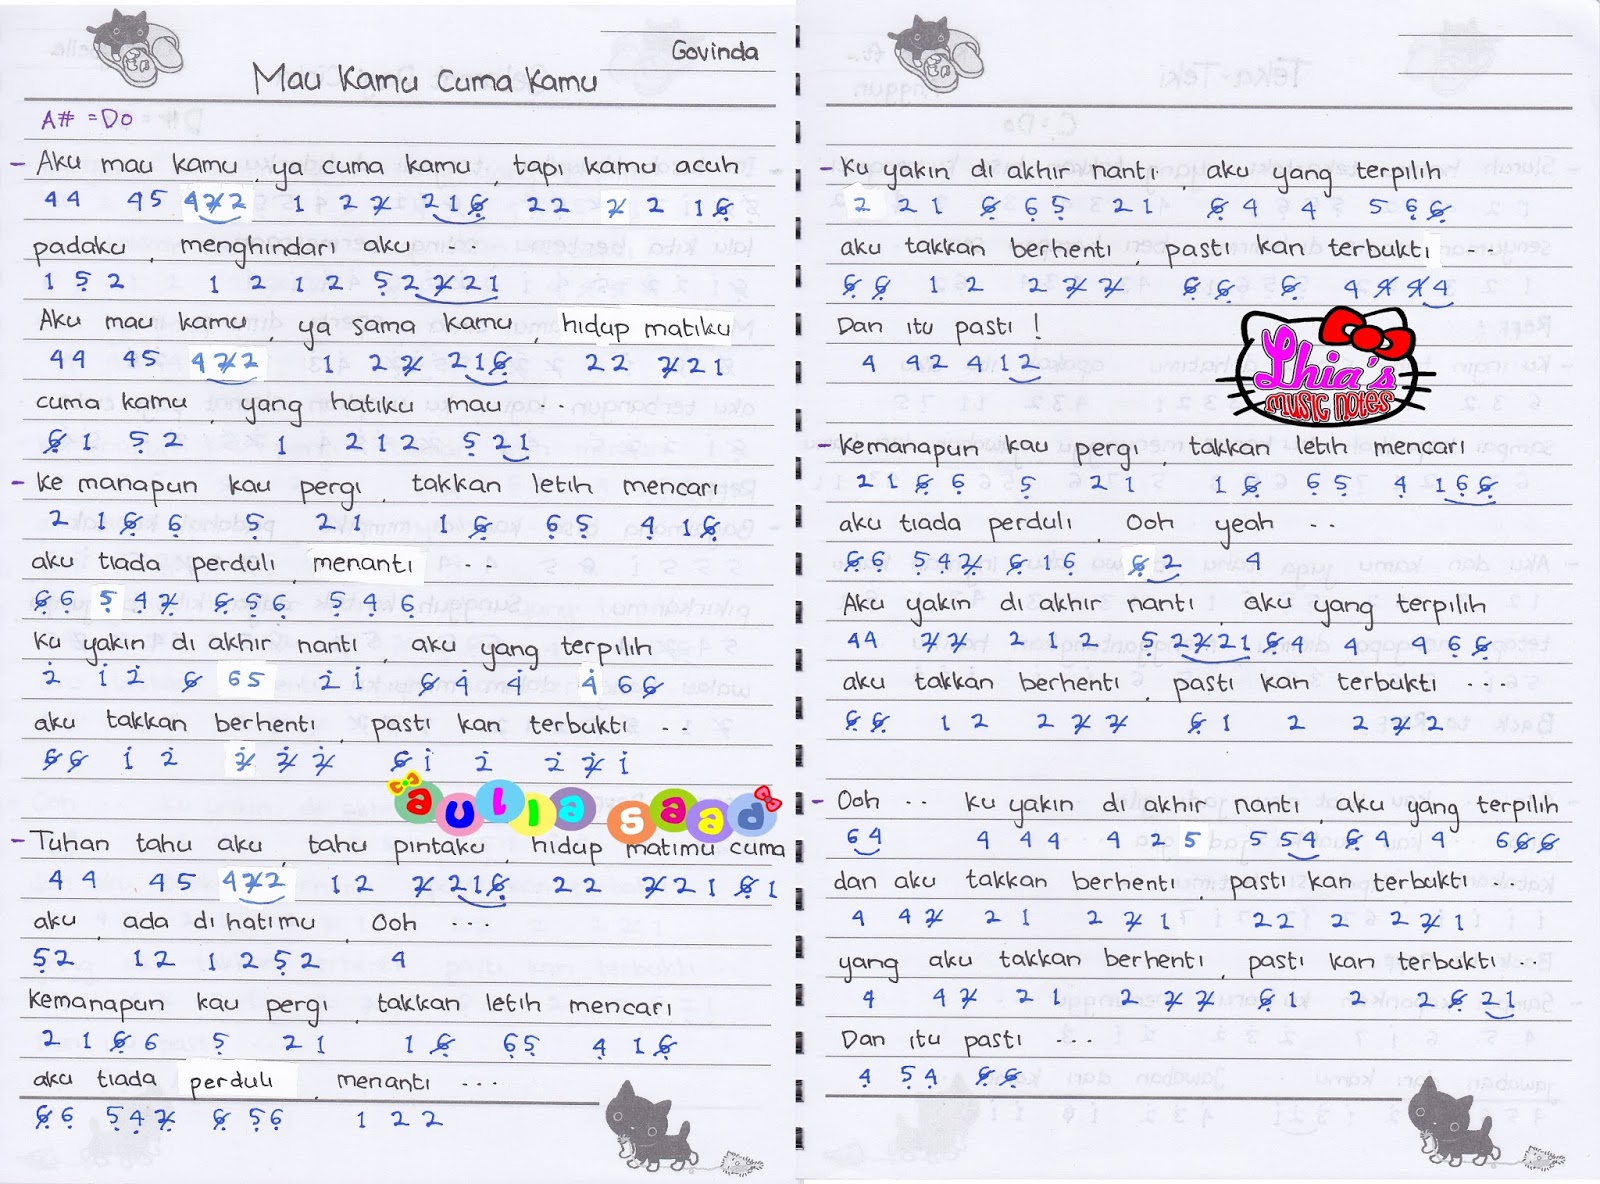 Govinda
Mau Kamu Cuma Kamu
A# = Do
- Aku mau kamu, ya cuma kamu, tapi kamu acuh
4 4 4 5 4 2 2 1 2 2 2 1 6 2 2 2 2 1 6
padaku, menghindari aku ...
1 5 2 1 2 1 2 5 2 2 2 1
Aku mau kamu, ya sama kamu, hidup matiku
4 4 4 5 4 2 2 1 2 2 2 1 6 2 2 2 2 1
cuma kamu, yang hatiku mau ..
6 1 5 2 1 2 1 2 5 2 1
- Ke manapun kau pergi, takkan letih mencari
2 1 6 6 5 2 1 1 6 6 5 4 1 6
aku tiada perduli, menanti ..
6 6 5 4 2 6 5 6 5 4 6
Ku yakin di akhir nanti, aku yang terpilih
2 1 2 6 6 5 2 1 6 4 4 4 6 6
aku takkan berhenti, pasti kan terbukti ..
6 6 1 2 2 2 2 6 1 2 2 2 1
aulia saad
- Tuhan tahu aku, tahu pintaku, hidup matimu cuma
4 4 4 5 4 2 2 1 2 2 2 1 6 2 2 2 2 1 6 1
aku, ada di hatimu, Ooh ...
5 2 1 2 1 2 5 2 4
Kemanapun kau pergi, takkan letih mencari
2 1 6 6 5 2 1 1 6 6 5 4 1 6
aku tiada perduli, menanti ...
6 6 5 4 2 6 5 6 1 2 2
- Ku yakin di akhir nanti, aku yang terpilih
2 2 1 6 6 5 2 1 6 4 4 5 6 6
aku takkan berhenti, pasti kan terbukti ...
6 6 1 2 2 2 2 6 6 6 4 4 4 4
Dan itu pasti !
4 4 2 4 1 2
Lhia's
music notes
- Kemanapun kau pergi, takkan letih mencari
2 1 6 6 5 2 1 1 6 6 5 4 1 6 6
aku tiada perduli, Ooh yeah ..
6 6 5 4 2 6 1 6 6 2 4
Aku yakin di akhir nanti, aku yang terpilih
4 4 2 2 2 1 2 5 2 2 2 1 6 4 4 4 6 6
aku takkan berhenti, pasti kan terbukti ...
6 6 1 2 2 2 2 6 1 2 2 2 2
- Ooh .. ku yakin di akhir nanti, aku yang terpilih
6 4 4 4 4 4 2 5 5 5 4 6 4 4 6 6 6
dan aku takkan berhenti, pasti kan terbukti ..
4 4 2 2 1 2 2 1 2 2 2 2 2 1
yang aku takkan berhenti, pasti kan terbukti ..
4 4 2 2 1 2 2 2 6 1 2 2 6 2 1
Dan itu pasti ...
4 5 4 6 6